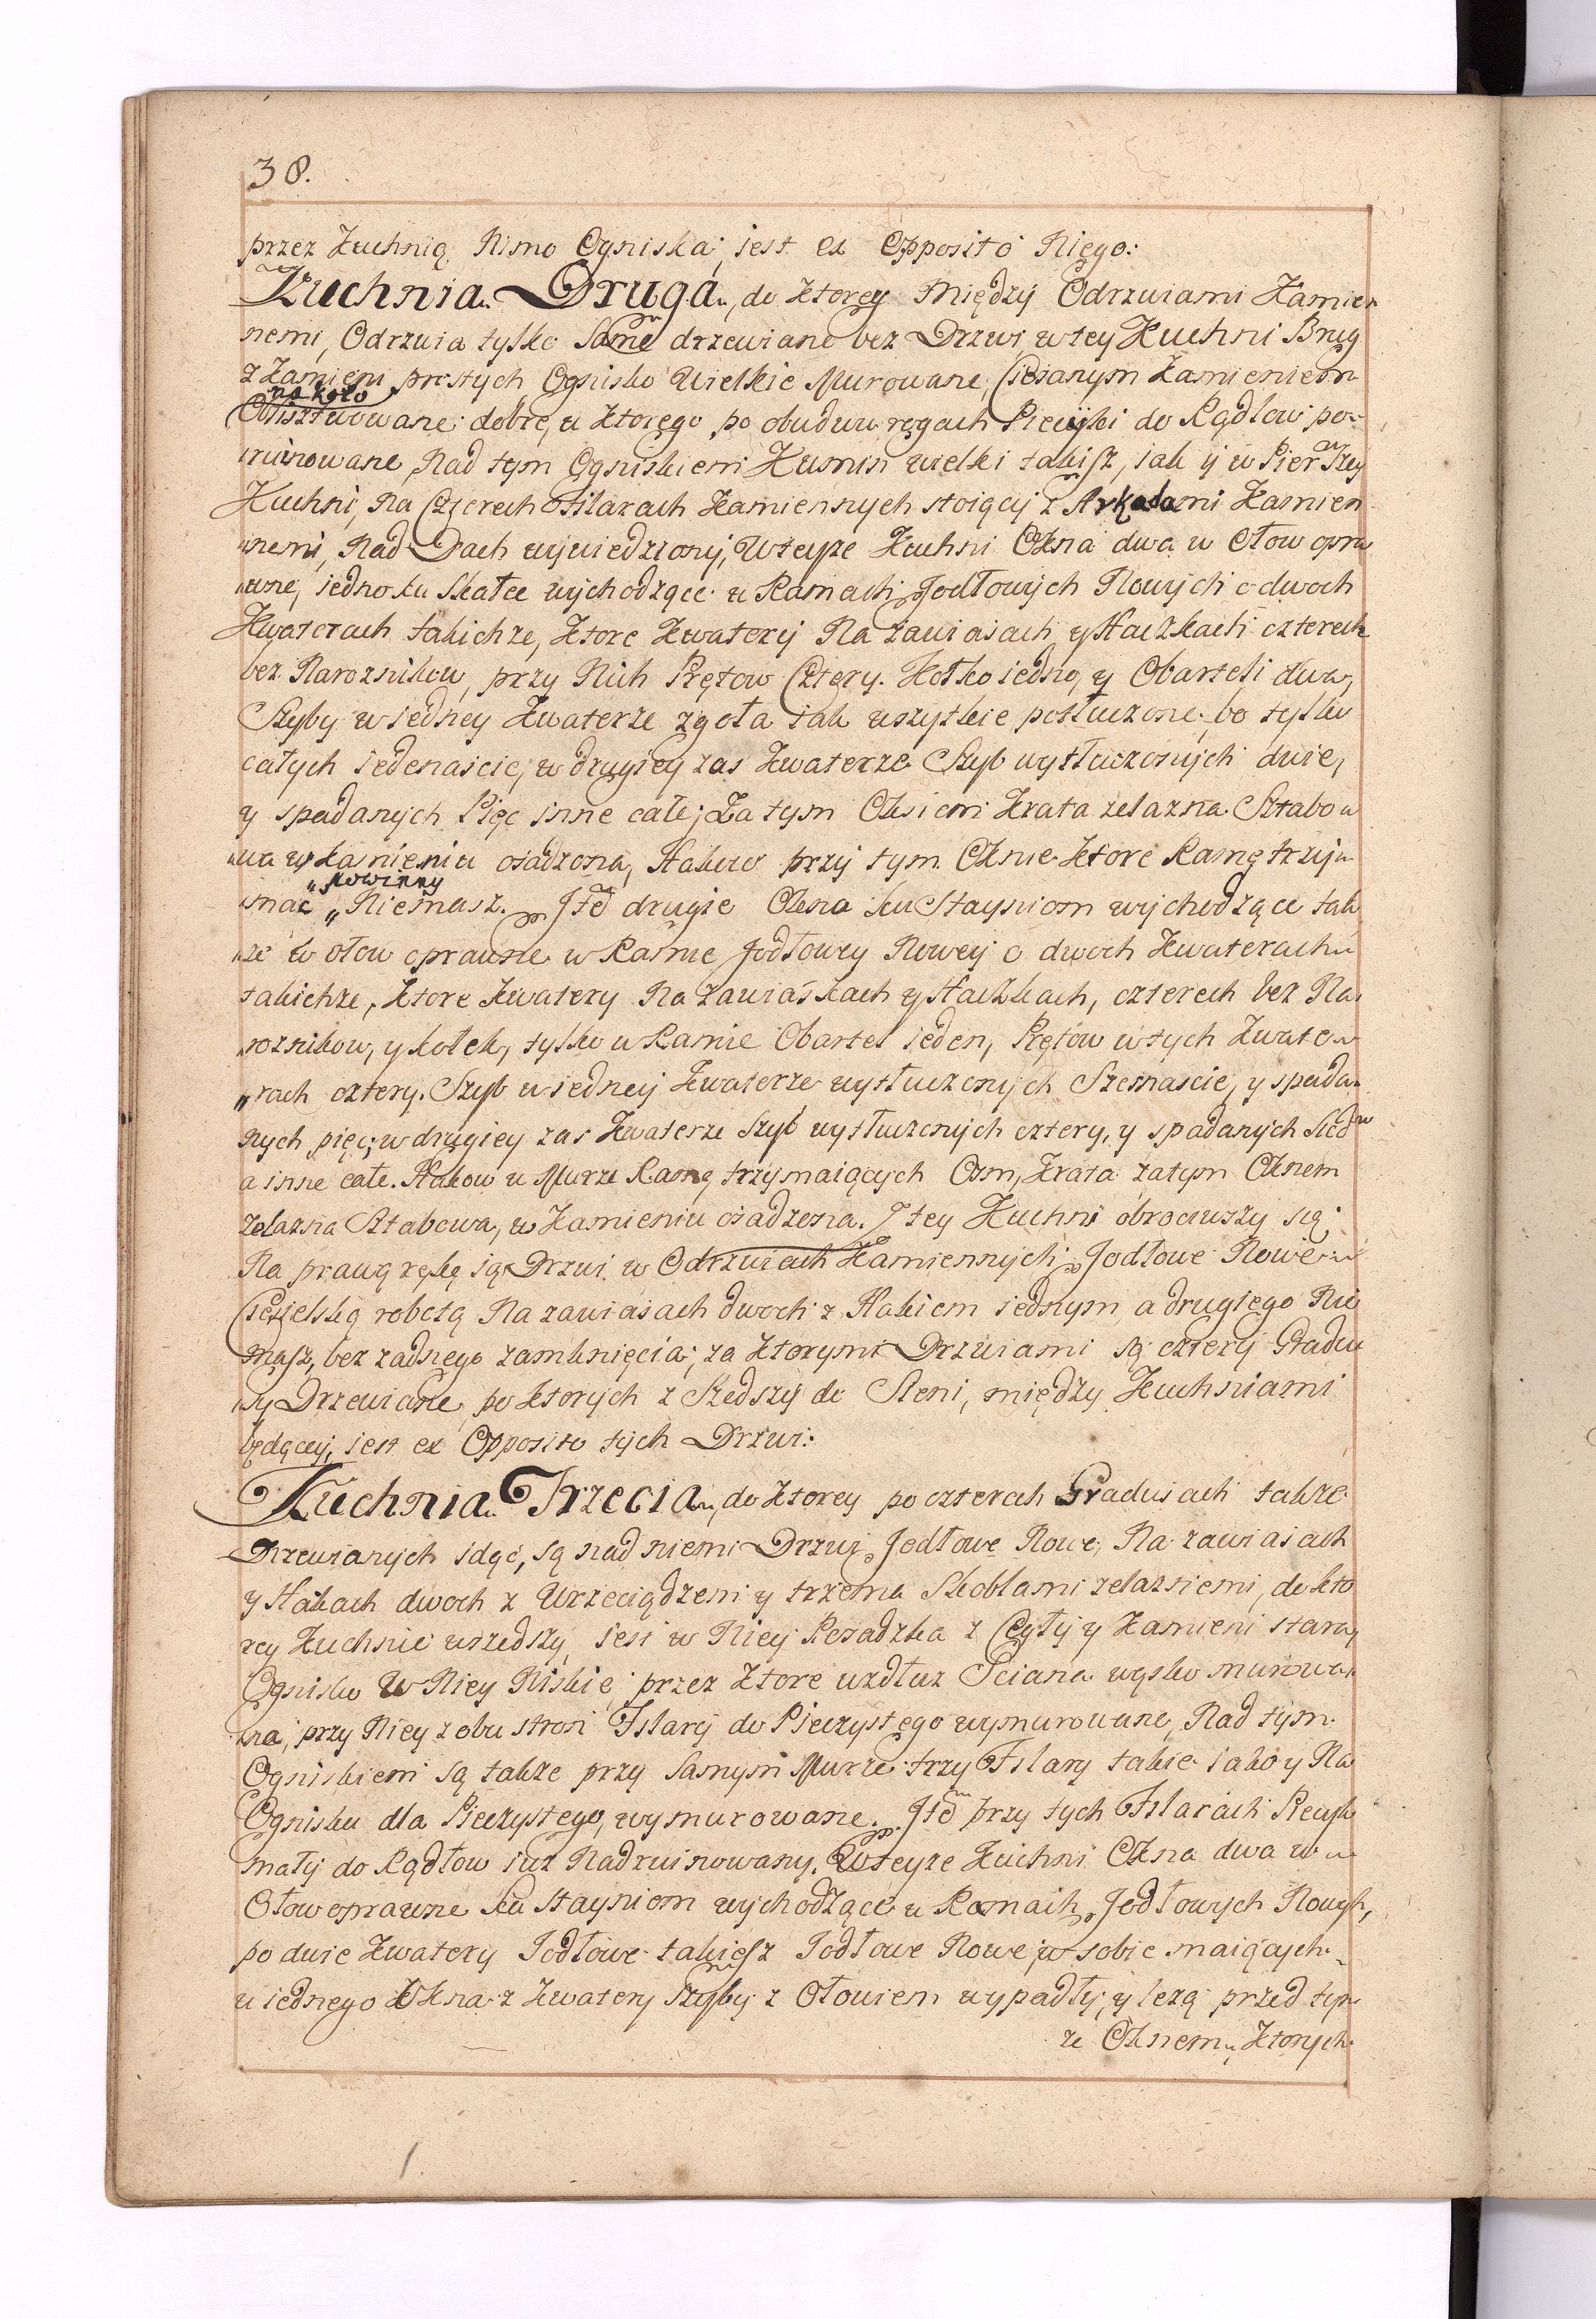 38.
przez Kuchnią Mimo Ogniska, jest ex Opposito Niego:
Kuchnia Druga, do Ktorey Między Odrzwiami Kamien
nemi, Odrzwia tylko Same drzewiane bez Drzwi, w tey Kuchni Brug
z Kamieni prostych Ognisko Wielkie Murowane, Ciosanym Kamieniem
na koło
Obisztwowane dobre, u Ktorego po obudwu rogach Piecyki do Rądlow po
ruinowane, Nad tym Ogniskiem Kumin wielki takisz, iak y w Pierwszey
Kuchni, Na Czterech Filarach Kamiennych stoiący z Arkadami Kamien
nemi, Nad Dach wywiedziony, W teyże Kuchni Okna dwa w Ołow opra
wne, iedno ku Skałce wychodzące w Ramach Jodłowych Nowych o dwoch
Kwaterach takichże, Ktore Kwatery Na zawiasach y Haczkach czterech
bez Narożnikow, przy Nich Prętow Cztery. Kołko iedno, y Obartli dwa,
Szyby w iedney Kwaterze zgoła iak wszytkie potłuczone, bo tylko
całych iedenaście, w drugiey zas Kwaterze Szyb wytłuczonych dwie,
y spadanych Pięc inne całe; Za tym Oknem Krata żelazna Sztabo
wa w kamieniu osadzona, Hakow przy tym Oknie Ktore Ramę trzy
Powinny
mać Niemasz. Ite drugie Okno ku Stayniom wychodzące tak
że w ołow oprawne w Ramie Jodłowey Nowey o dwoch Kwaterach
takichże, Ktore Kwatery Na zawiaskach y Haczkach, czterech bez Na
rożnikow, y kołek, tylko w Ramie Obartel ieden, Prętow w tych Kwate
rach cztery. Szyb w iedney Kwaterze wytłuczonych Szesnascie, y spada
nych pięc; w drugiey zas Kwaterze Szyb wytłuczonych cztery, y spadanych Siedm
a inne całe. Hakow w Murze Ramę trzymaiących Osm, Krata za tym Oknem
żelazna Sztabowa, w Kamieniu osadzona. Z tey Kuchni obrociwszy się
Na prawą rękę są Drzwi w Odrzwiach Kamiennych Jodłowe Nowe
Ciesielską robotą Na zawiasach dwoch z Hakiem iednym, a drugiego Nie
masz, bez żadnego zamknięcia; za Ktorymi Drzwiami są cztery Gradu
sy Drzewiane, po Ktorych z Szedszy do Sieni, między Kuchniami
będącey, iest ex Opposito tych Drzwi:
Kuchnia Trzecia, do Ktorey po czterech Gradusach takze
Drzewianych idąc, są nad niemi Drzwi Jodłowe Nowe, Na zawiasach
y Hakach dwoch z Wrzeciądzem y trzema Skoblami żelaznemi, do Kto
rey Kuchnie wszedszy, iest w Niey Posadzka z Cegły y Kamieni stara,
Ognisko W Niey Niskie, przez Ktore wzdłuż Sciana wąsko murowa
na, przy Niey z obu stron Filary do Pieczystego wymurowane, Nad tym
Ogniskiem są takze przy Samym Murze trzy Filary takie iako y Na
Ognisku dla Pieczystego, wymurowane. Ite przy tych Filarach Piecyk
mały do Rądłow iuż Nadruinowany. W teyze Kuchni Okna dwa w
Ołow oprawne ku Stayniom wychodzące w Ramach Jodłowych Nowych,
po dwie Kwatery Jodłowe takiesz Jodłowe Nowe w sobie maiących
u iednego Okna z Kwatery Szyby z Ołowiem wypadły, y leżą przed tym
że Oknem, Ktorych